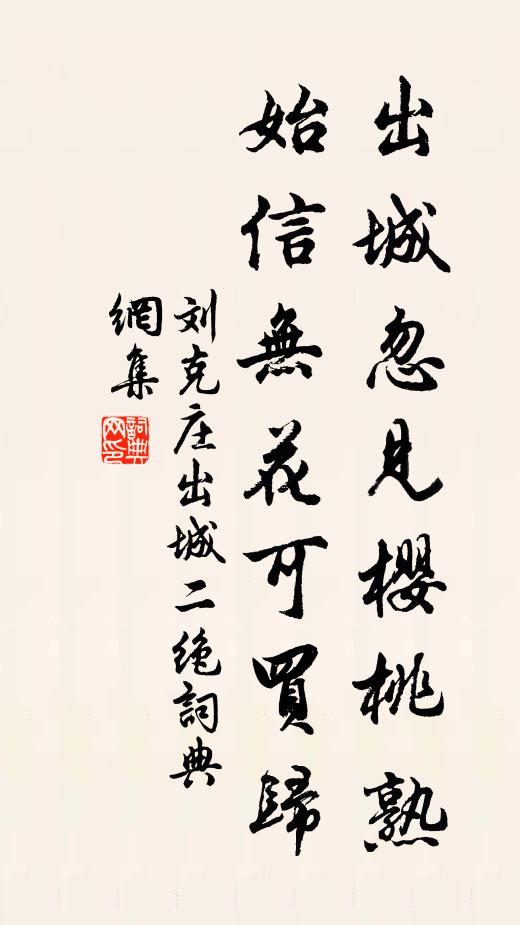 出城忽見櫻桃熟
始信無花可買歸
刘克庄出城二绝詞典
網集
詞典
网印